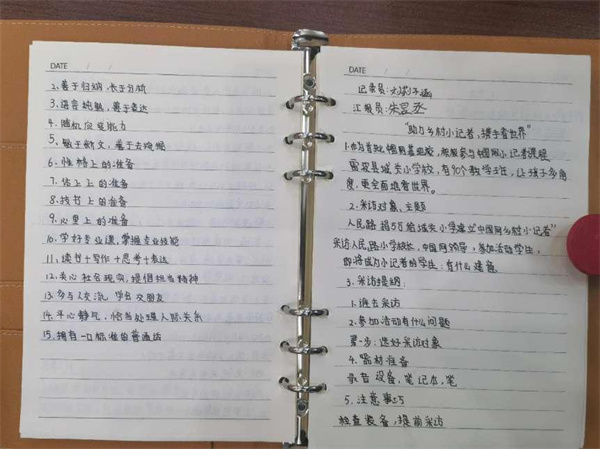 DATE / /
2、善于归纳,长于分析
3、语言规范,善于表达
4、随机应变能力
5、敏于新文,善于去挖掘
6、性格上的准备
7、知识上的准备
8、技行上的准备
9、心里上的准备
10、学好专业课,掌握专业技能
11、读书+写作+思考+表达
12、关心社会现实,提倡担当精神
13、多与人交流,学会交朋友
14、平心静气,恰当处理人际关系
15、拥有一口标准的普通话
DATE / /
记录员:刘子涵
汇报员:朱昱丞
"助力乡村小记者,携手看世界"
1、作为首批中国网基地校,积极参与中国网小记者课程
富观县城关小学校,有90个教学班,让孩子多角
度,更全面地看世界。
2、采访对象、主题
人民路 福5万给城关小学建立"中国网乡村小记者"
采访人民路小学校长,中国网领导,参加活动学生,
即将成为小记者的学生:有什么准备
3、采访提纲:
1、谁去采访
2、参加活动有什么问题
第一步:选好采访对象
4、器材准备
录音设备,笔记本,笔
5、注意事项
检查装备,提前采访